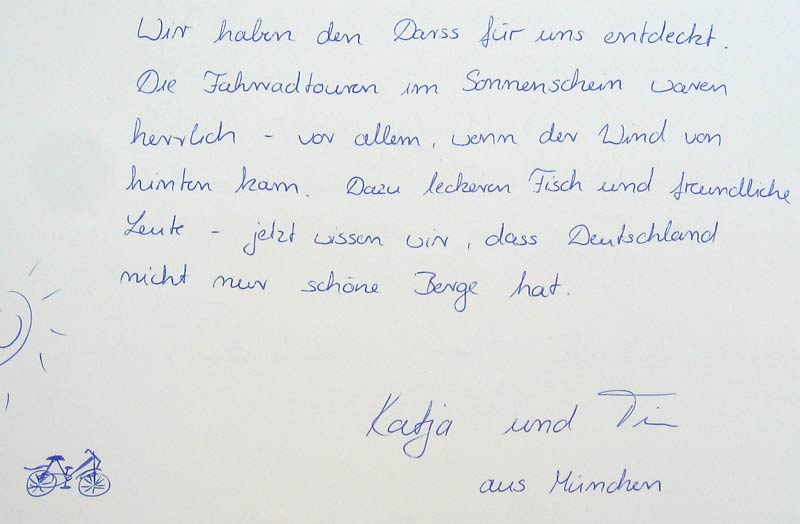 Wir haben den Darss für uns entdeckt.
Die Fahrradtouren im Sonnenschein waren
herrlich - vor allem, wenn der Wind von
hinten kam. Dazu leckeren Fisch und freundliche
Leute - jetzt wissen wir, dass Deutschland
nicht nur schöne Berge hat.
Katja und Tim
aus München